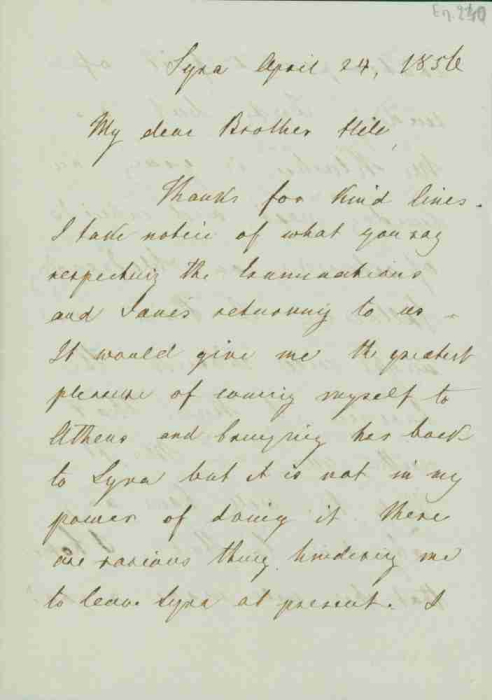 Εγ. 240
Syra April 24, 1856
My dear Brother Hill,
Thanks for kind lines.
I take notice of what you say
respecting the Examinations
and Jane's returning to us -
It would give me the greatest
pleasure of coming myself to
Athens and bringing her back
to Syra but it is not in my
power of doing it. There
are various thing hindering me
to leave Syra at present. I